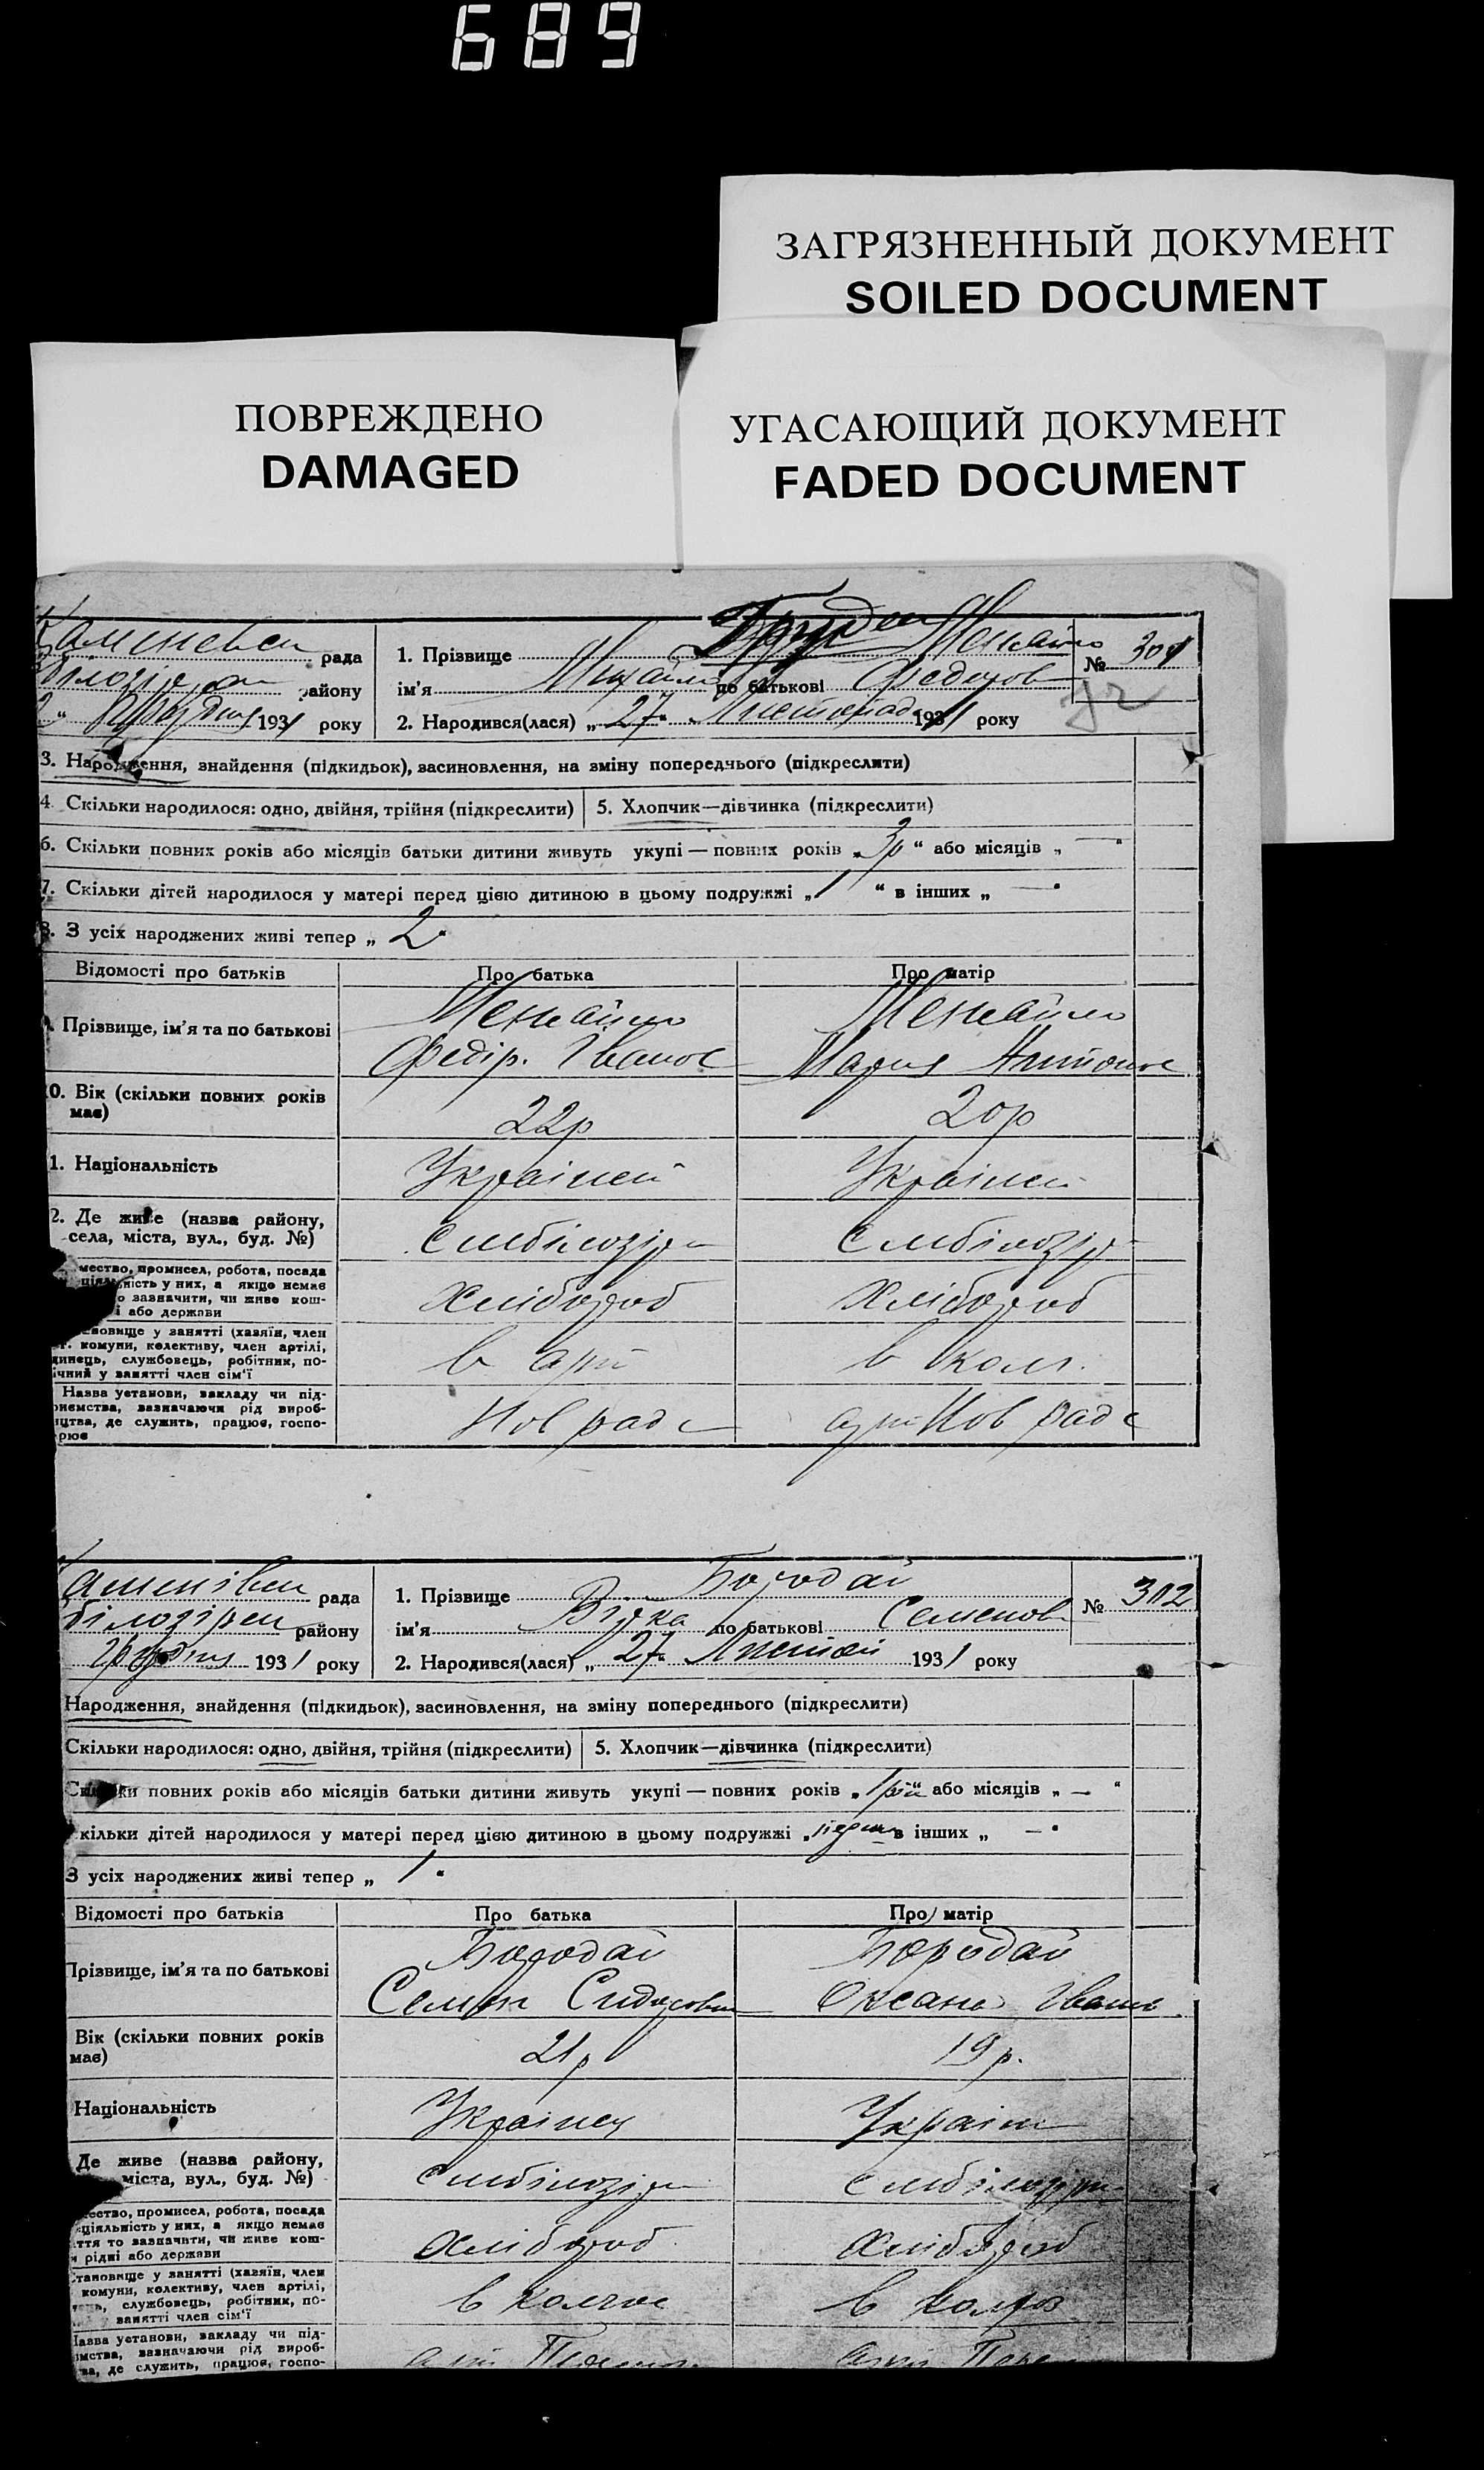 689
ЗАГРЯЗНЕННЫЙ ДОКУМЕНТ
SOILED DOCUMENT
ПОВРЕЖДЕНО
DAMAGED
УГАСАЮЩИЙ ДОКУМЕНТ
FADED DOCUMENT
рада
1. Прізвище Менайло
№ 301
району
ім'я Михайло по батькові Федоров
2 " Грудня 1931 року
2. Народився(лася) „ 27 " Листопад 1931 року
3. Народження, знайдення (підкидьок), засиновлення, на зміну попереднього (підкреслити)
4. Скільки народилося: одно, двійня, трійня (підкреслити)
5. Хлопчик—дівчинка (підкреслити)
6. Скільки повних років або місяців батьки дитини живуть укупі — повних років „ 3р “ або місяців „ — “
7. Скільки дітей народилося у матері перед цією дитиною в цьому подружжі „ 1 “ в інших „ — “
8. З усіх народжених живі тепер „ 2 “
Відомості про батьків
Про батька
Про матір
Прізвище, ім'я та по батькові
Менайло
Федір. Іванов
Менайло
Мария Антонов
10. Вік (скільки повних років має)
22р
20р
1. Національність
Українец
Україн
2. Де живе (назва району,
села, міста, вул., буд. №)
с мбілозір
с мбілозір
мество, промисел, робота, посада
ціяльність у них, а якщо немає
о зазначити, чи живе кош-
і або держави
Хлібороб
Хлібороб
ановище у занятті (хазяїн, член
комуни, колективу, член артілі,
динець, службовець, робітник, по-
ічний у занятті член сім'ї
в арт
в кол.
Назва установи, закладу чи під-
риємства, зазначаючи рід вироб-
ицтва, де служить, працює, госпо-
рює
Нов рад
арт Нов рад
рада
1. Прізвище Бородай
№ 302
Білозірськ району
ім'я Вірка по батькові Семенов
Грудня 1931 року
2. Народився(лася) „ 27 " Листоп 1931 року
Народження, знайдення (підкидьок), засиновлення, на зміну попереднього (підкреслити)
Скільки народилося: одно, двійня, трійня (підкреслити)
5. Хлопчик—дівчинка (підкреслити)
Скільки повних років або місяців батьки дитини живуть укупі — повних років „ 1 рік “ або місяців „ — “
кільки дітей народилося у матері перед цією дитиною в цьому подружжі „ в інших „ — “
З усіх народжених живі тепер „ 1 “
Відомості про батьків
Про батька
Про матір
Прізвище, ім'я та по батькові
Бородай
Семен Сидорович
Бородай
Оксана Іванів
Вік (скільки повних років
має)
21р
19р.
Національність
Українец
Україн
Де живе (назва району,
міста, вул., буд. №)
с мбілозір
с мбілозір
ество, промисел, робота, посада
ціяльність у них, а якщо немає
ття то зазначити, чи живе кош-
и рідні або держави
Хлібороб
Хлібороб
тановище у занятті (хазяїн, член
комуни, колективу, член артілі,
службовець, робітник, по-
занятті член сім'ї
в колгос
в колгоз
Назва установи, закладу чи під-
иємства, зазначаючи рід вироб-
ва, де служить, працює, госпо-